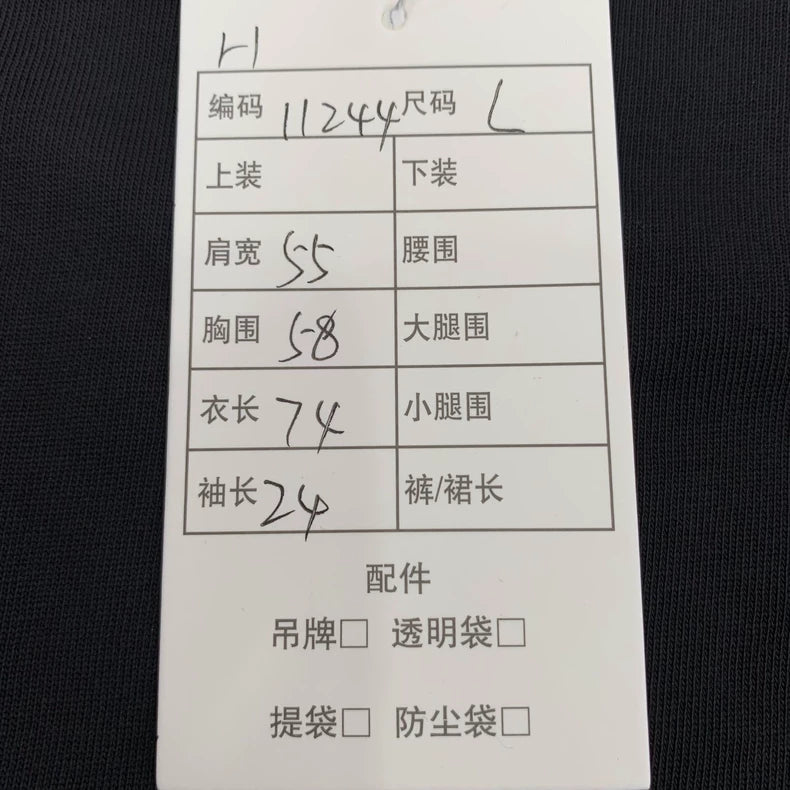 H
编码 11244 尺码 L
上装 下装
肩宽 55 腰围
胸围 58 大腿围
衣长 74 小腿围
袖长 24 裤/裙长
配件
吊牌□ 透明袋□
提袋□ 防尘袋□